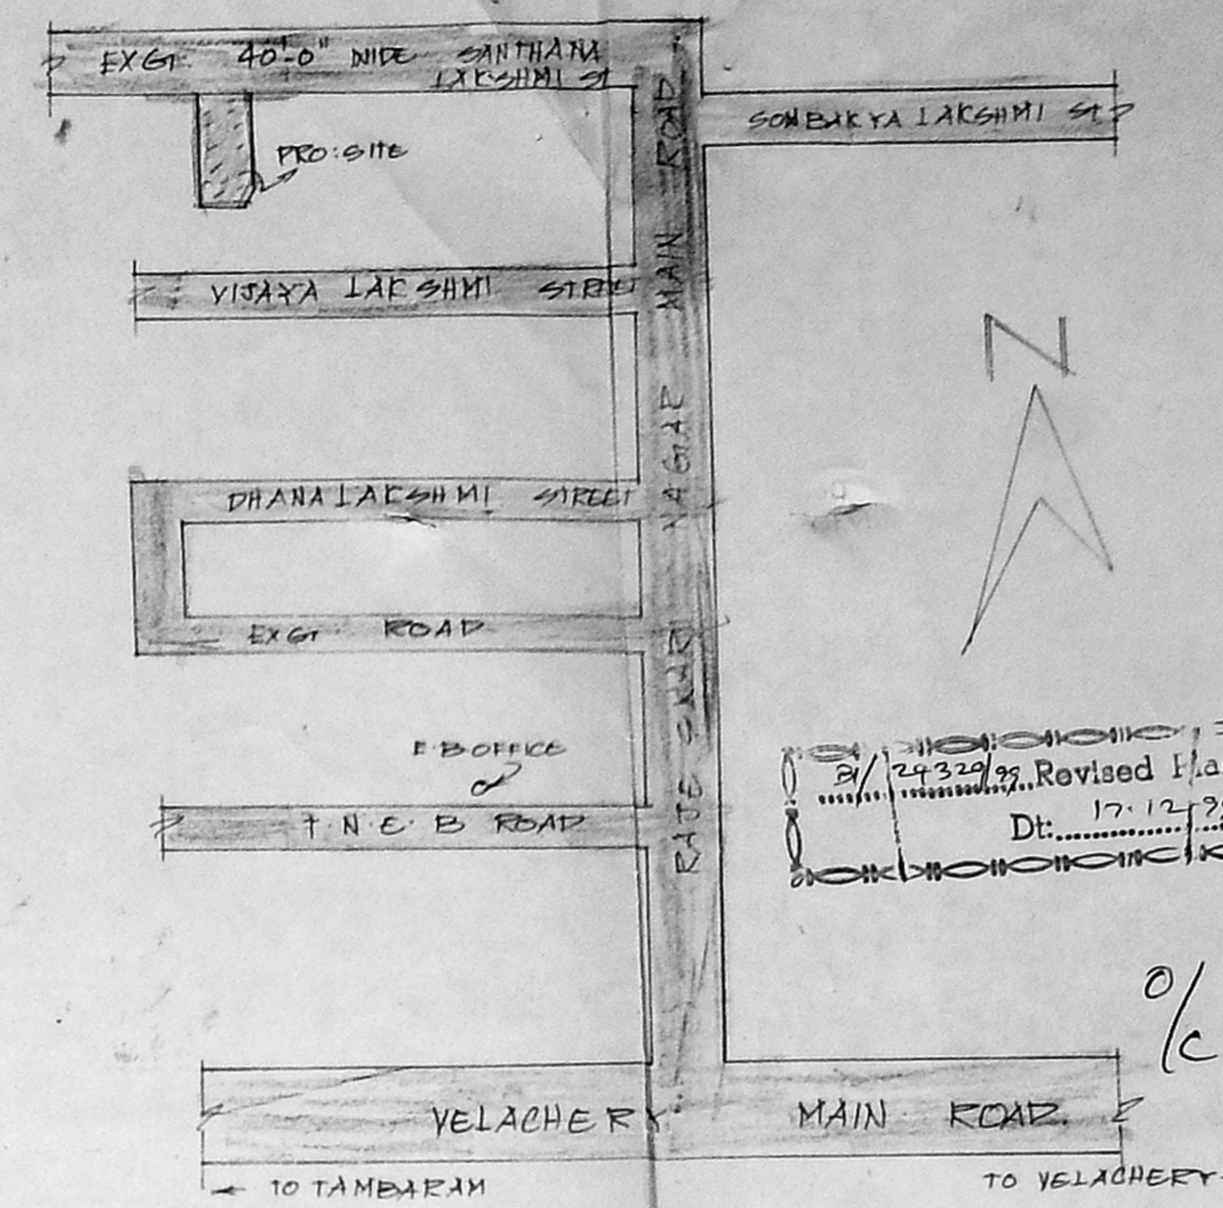 EXGT. 40'-0" WIDE SANTHANA
LAKSHMI ST
SONBAKYA LAKSHMI ST
PRO:SITE
VIJAYA LAKSHMI STREET
N
DHANALAKSHMI STREET
EXGT. ROAD
RAJESWARI NAGAR MAIN ROAD
E.B OFFICE
T.N.E.B ROAD
B1/24320/99 Revised Pla
Dt: 17.12.9
O/C
VELACHERY MAIN ROAD.
TO TAMBARAM
TO VELACHERY